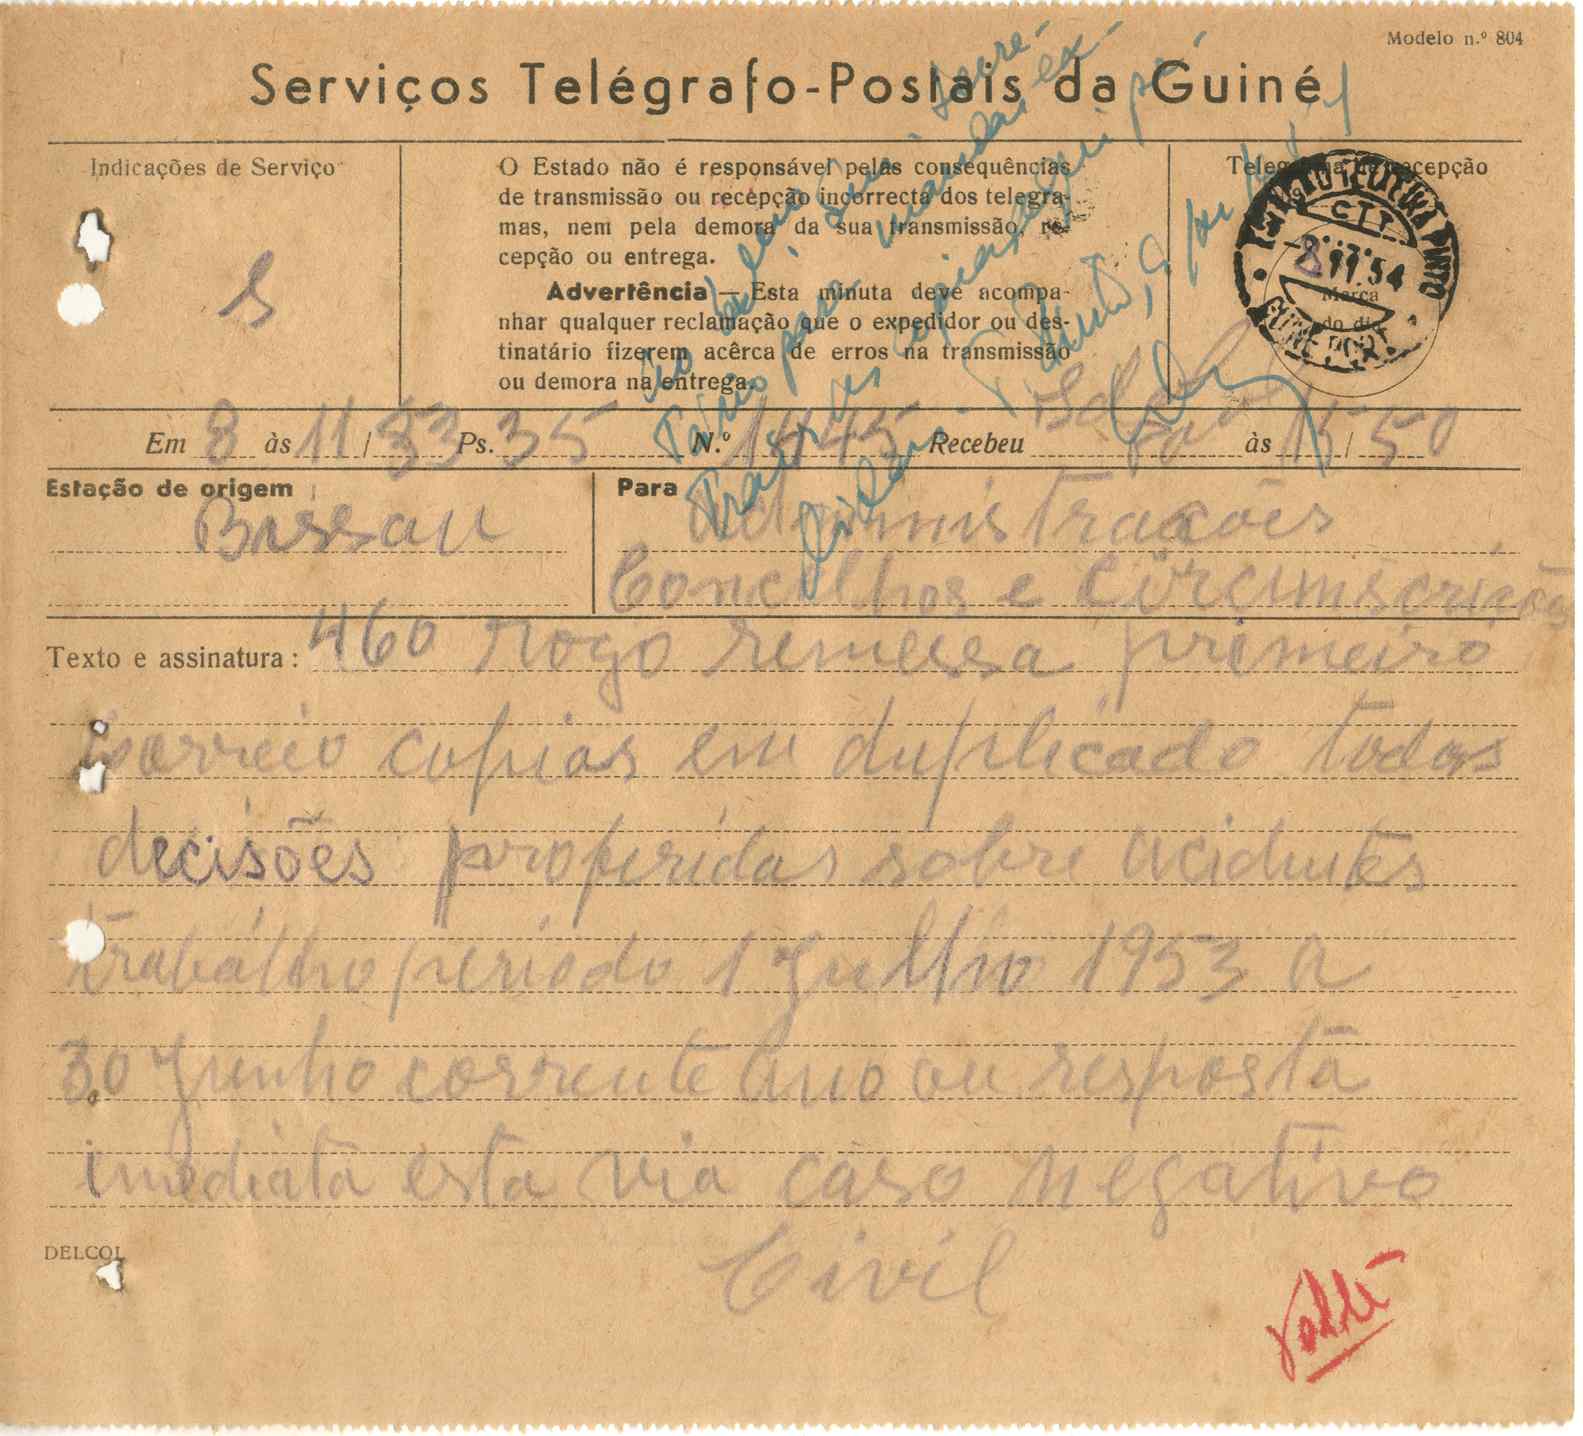 Modelo n.º 804
Serviços Telégrafo-Postais da Guiné
Indicações de Serviço
S
O Estado não é responsável pelas consequências
de transmissão ou recepção incorrecta dos telegra-
mas, nem pela demora da sua transmissão, re-
cepção ou entrega.
Advertência — Esta minuta deve acompa-
nhar qualquer reclamação que o expedidor ou des-
tinatário fizerem acêrca de erros na transmissão
ou demora na entrega.
Telegrama de recepção
CTT
8 11 54
Marca
do dia
GUINÉ PORT.
Em 8 às 11/33 Ps. 35 N.º 1445 Recebeu às 15/50
Estação de origem
Bissau
Para Administracões
Concelhos e Circunscrições
Texto e assinatura: 460 Rogo remessa primeiro
correio copias em duplicado todas
decisões proferidas sobre acidentes
trabálho periodo 1 Julho 1953 a
30 Junho corrente ano ou resposta
imediata esta via caso negativo
Civil
DELCOL